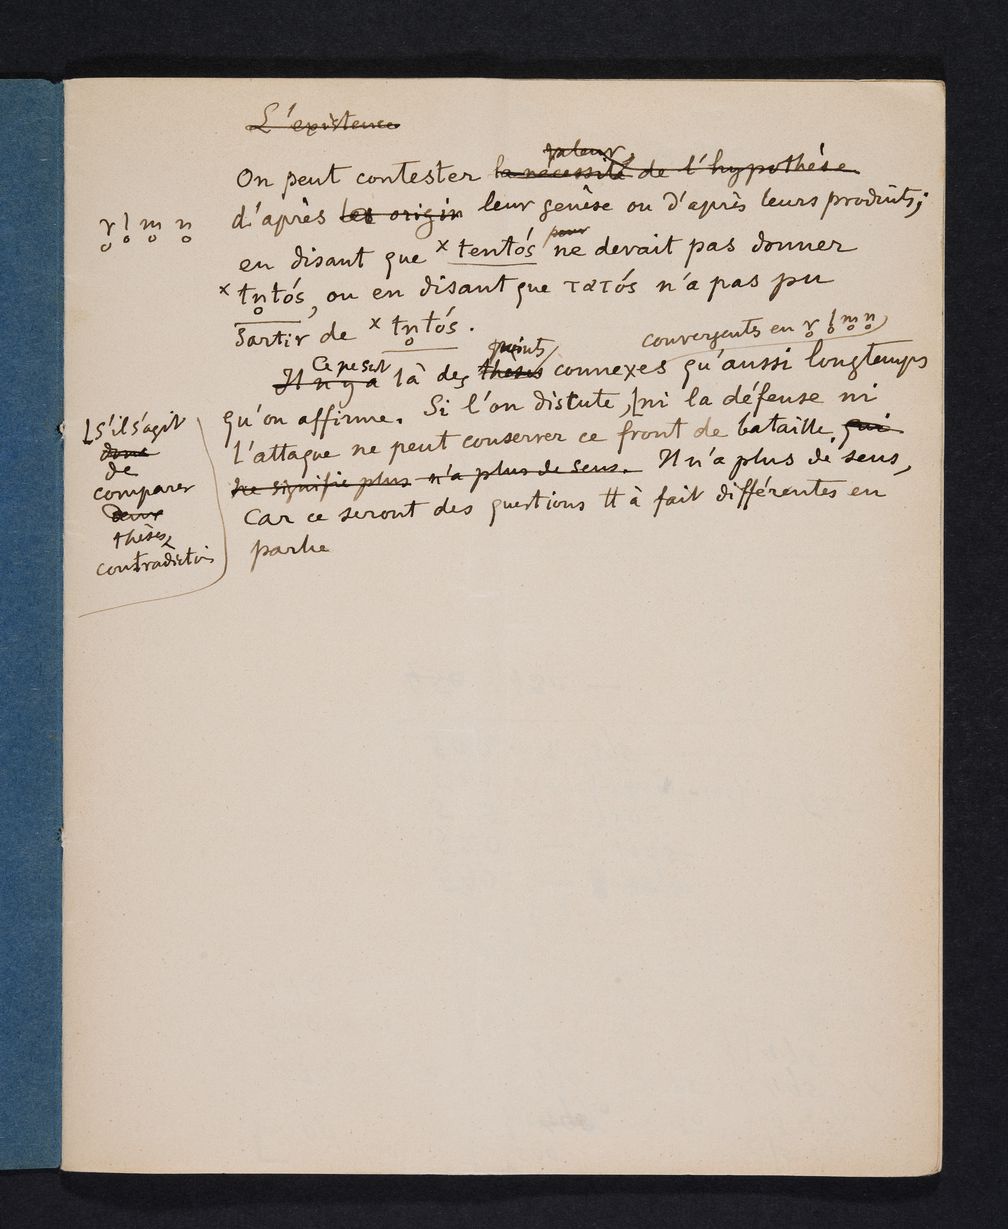 L'existence
valeur,
On peut contester la nécessité de l'hypothèse
r̥ l̥ m̥ n̥
d'après les origin leur genèse ou d'après leurs produits;
pour
en disant que × tentós ne devait pas donner
× tn̥tós, ou en disant que τατός n'a pas pu
sortir de × tn̥tós.
convergents en r̥ l̥ m̥ n̥
Ce ne sont points
Il n'y a là des thèses connexes qu'aussi longtemps
qu'on affirme. Si l'on discute, [ni la défense ni
l'attaque ne peut conserver ce front de bataille, qui
ne signifie plus n'a plus de sens. Il n'a plus de sens,
car ce seront des questions tt à fait différentes en
partie
[s'il s'agit
donc
de
comparer
deux
thèses
contradictoi